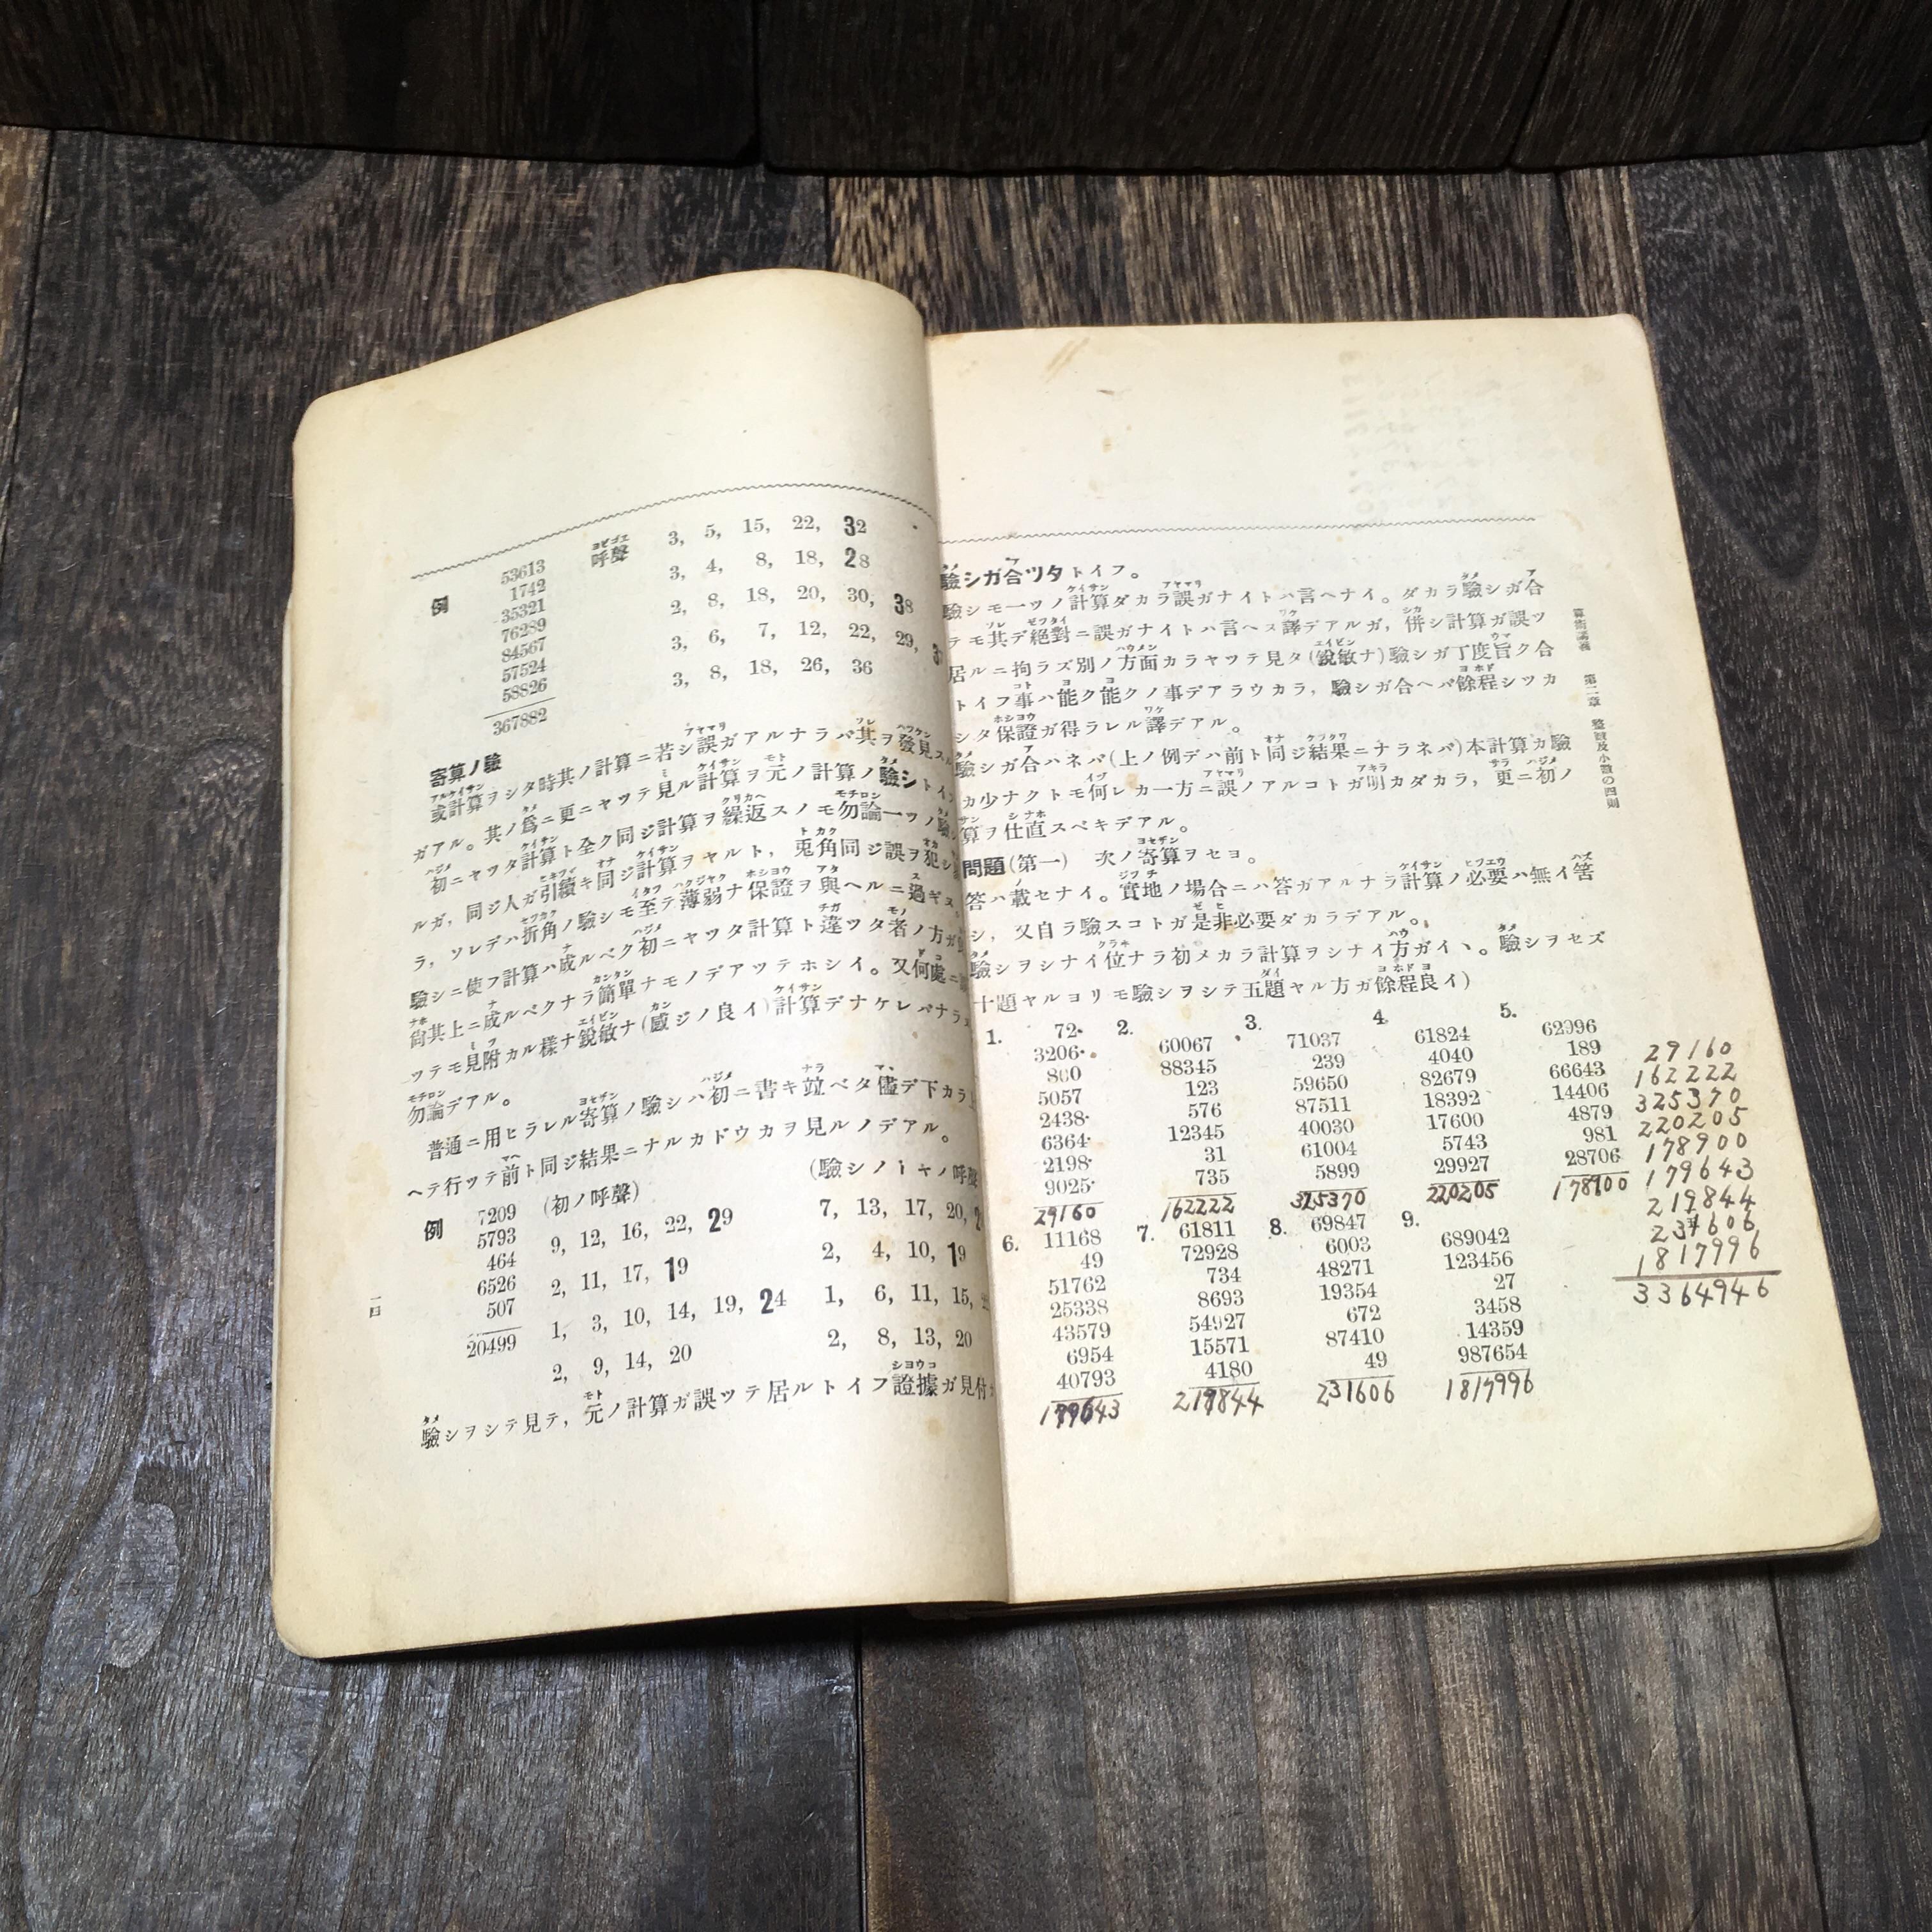 例
53613
1742
35321
76289
84567
57524
58826
367882
呼聲
ヨビゴエ
3, 5, 15, 22, 32
3, 4, 8, 18, 28
2, 8, 18, 20, 30, 38
3, 6, 7, 12, 22, 29,
3, 8, 18, 26, 36
寄算ノ驗
或計算ヲシタ時其ノ計算ニ若シ誤ガアルナラバ其ヲ發見ス
ガアル。其ノ爲ニ更ニヤツテ見ル計算ヲ元ノ計算ノ驗シトイフ
初ニヤツタ計算ト全ク同ジ計算ヲ繰返スノモ勿論一ツノ驗
ルガ, 同ジ人ガ引續キ同ジ計算ヲヤルト, 兎角同ジ誤ヲ犯シ
ラ, ソレデハ折角ノ驗シモ至テ薄弱ナ保證ヲ與ヘルニ過ギヌ。
驗シニ使フ計算ハ成ルベク初ニヤツタ計算ト違ツタ者ノ方ガ
尙其上ニ成ルベクナラ簡單ナモノデアツテホシイ。又何處ニ
ツテモ見附カル樣ナ銳敏ナ(感ジノ良イ)計算デナケレバナラヌ
勿論デアル。
普通ニ用ヒラレル寄算ノ驗シハ初ニ書キ竝ベタ儘デ下カラ上
ヘテ行ツテ前ト同ジ結果ニナルカドウカヲ見ルノデアル。
例
7209
5793
464
6526
507
20499
(初ノ呼聲)
9, 12, 16, 22, 29
2, 11, 17, 19
1, 3, 10, 14, 19, 24
2, 9, 14, 20
(驗シノトキノ呼聲
7, 13, 17, 20,
2, 4, 10, 19
1, 6, 11, 15,
2, 8, 13, 20
驗シヲシテ見テ, 元ノ計算ガ誤ツテ居ルトイフ證據ガ見付
一四
驗シガ合ツタトイフ。
驗シモ一ツノ計算ダカラ誤ガナイトハ言ヘナイ。ダカラ驗シガ合
テモ其デ絕對ニ誤ガナイトハ言ヘヌ譯デアルガ, 併シ計算ガ誤ツ
居ルニ拘ラズ別ノ方面カラヤツテ見タ(銳敏ナ)驗シガ丁度旨ク合
トイフ事ハ能ク能クノ事デアラウカラ, 驗シガ合ヘバ餘程シツカ
シタ保證ガ得ラレル譯デアル。
驗シガ合ハネバ(上ノ例デハ前ト同ジ結果ニナラネバ)本計算カ驗
カ少ナクトモ何レカ一方ニ誤ノアルコトガ明カダカラ, 更ニ初ノ
算ヲ仕直スベキデアル。
問題(第一) 次ノ寄算ヲセヨ。
答ハ載セナイ。實地ノ場合ニハ答ガアルナラ計算ノ必要ハ無イ筈
シ, 又自ラ驗スコトガ是非必要ダカラデアル。
驗シヲシナイ位ナラ初メカラ計算ヲシナイ方ガイヽ。驗シヲセズ
十題ヤルヨリモ驗シヲシテ五題ヤル方ガ餘程良イ)
1.
72
3206
800
5057
2438
6364
2198
9025
29160
2.
60067
88345
123
576
12345
31
735
162222
3.
71037
239
59650
87511
40030
61004
5899
325370
4.
61824
4040
82679
18392
17600
5743
29927
220205
5.
62996
189
66643
14406
4879
981
28706
178900
6.
11168
49
51762
25338
43579
6954
40793
179643
7.
61811
72928
734
8693
54927
15571
4180
219844
8.
69847
6003
48271
19354
672
87410
49
231606
9.
689042
123456
27
3458
14359
987654
1817996
29160
162222
325370
220205
178900
179643
219844
231606
1817996
3364946
算術講義 第二章 整數及小數の四則